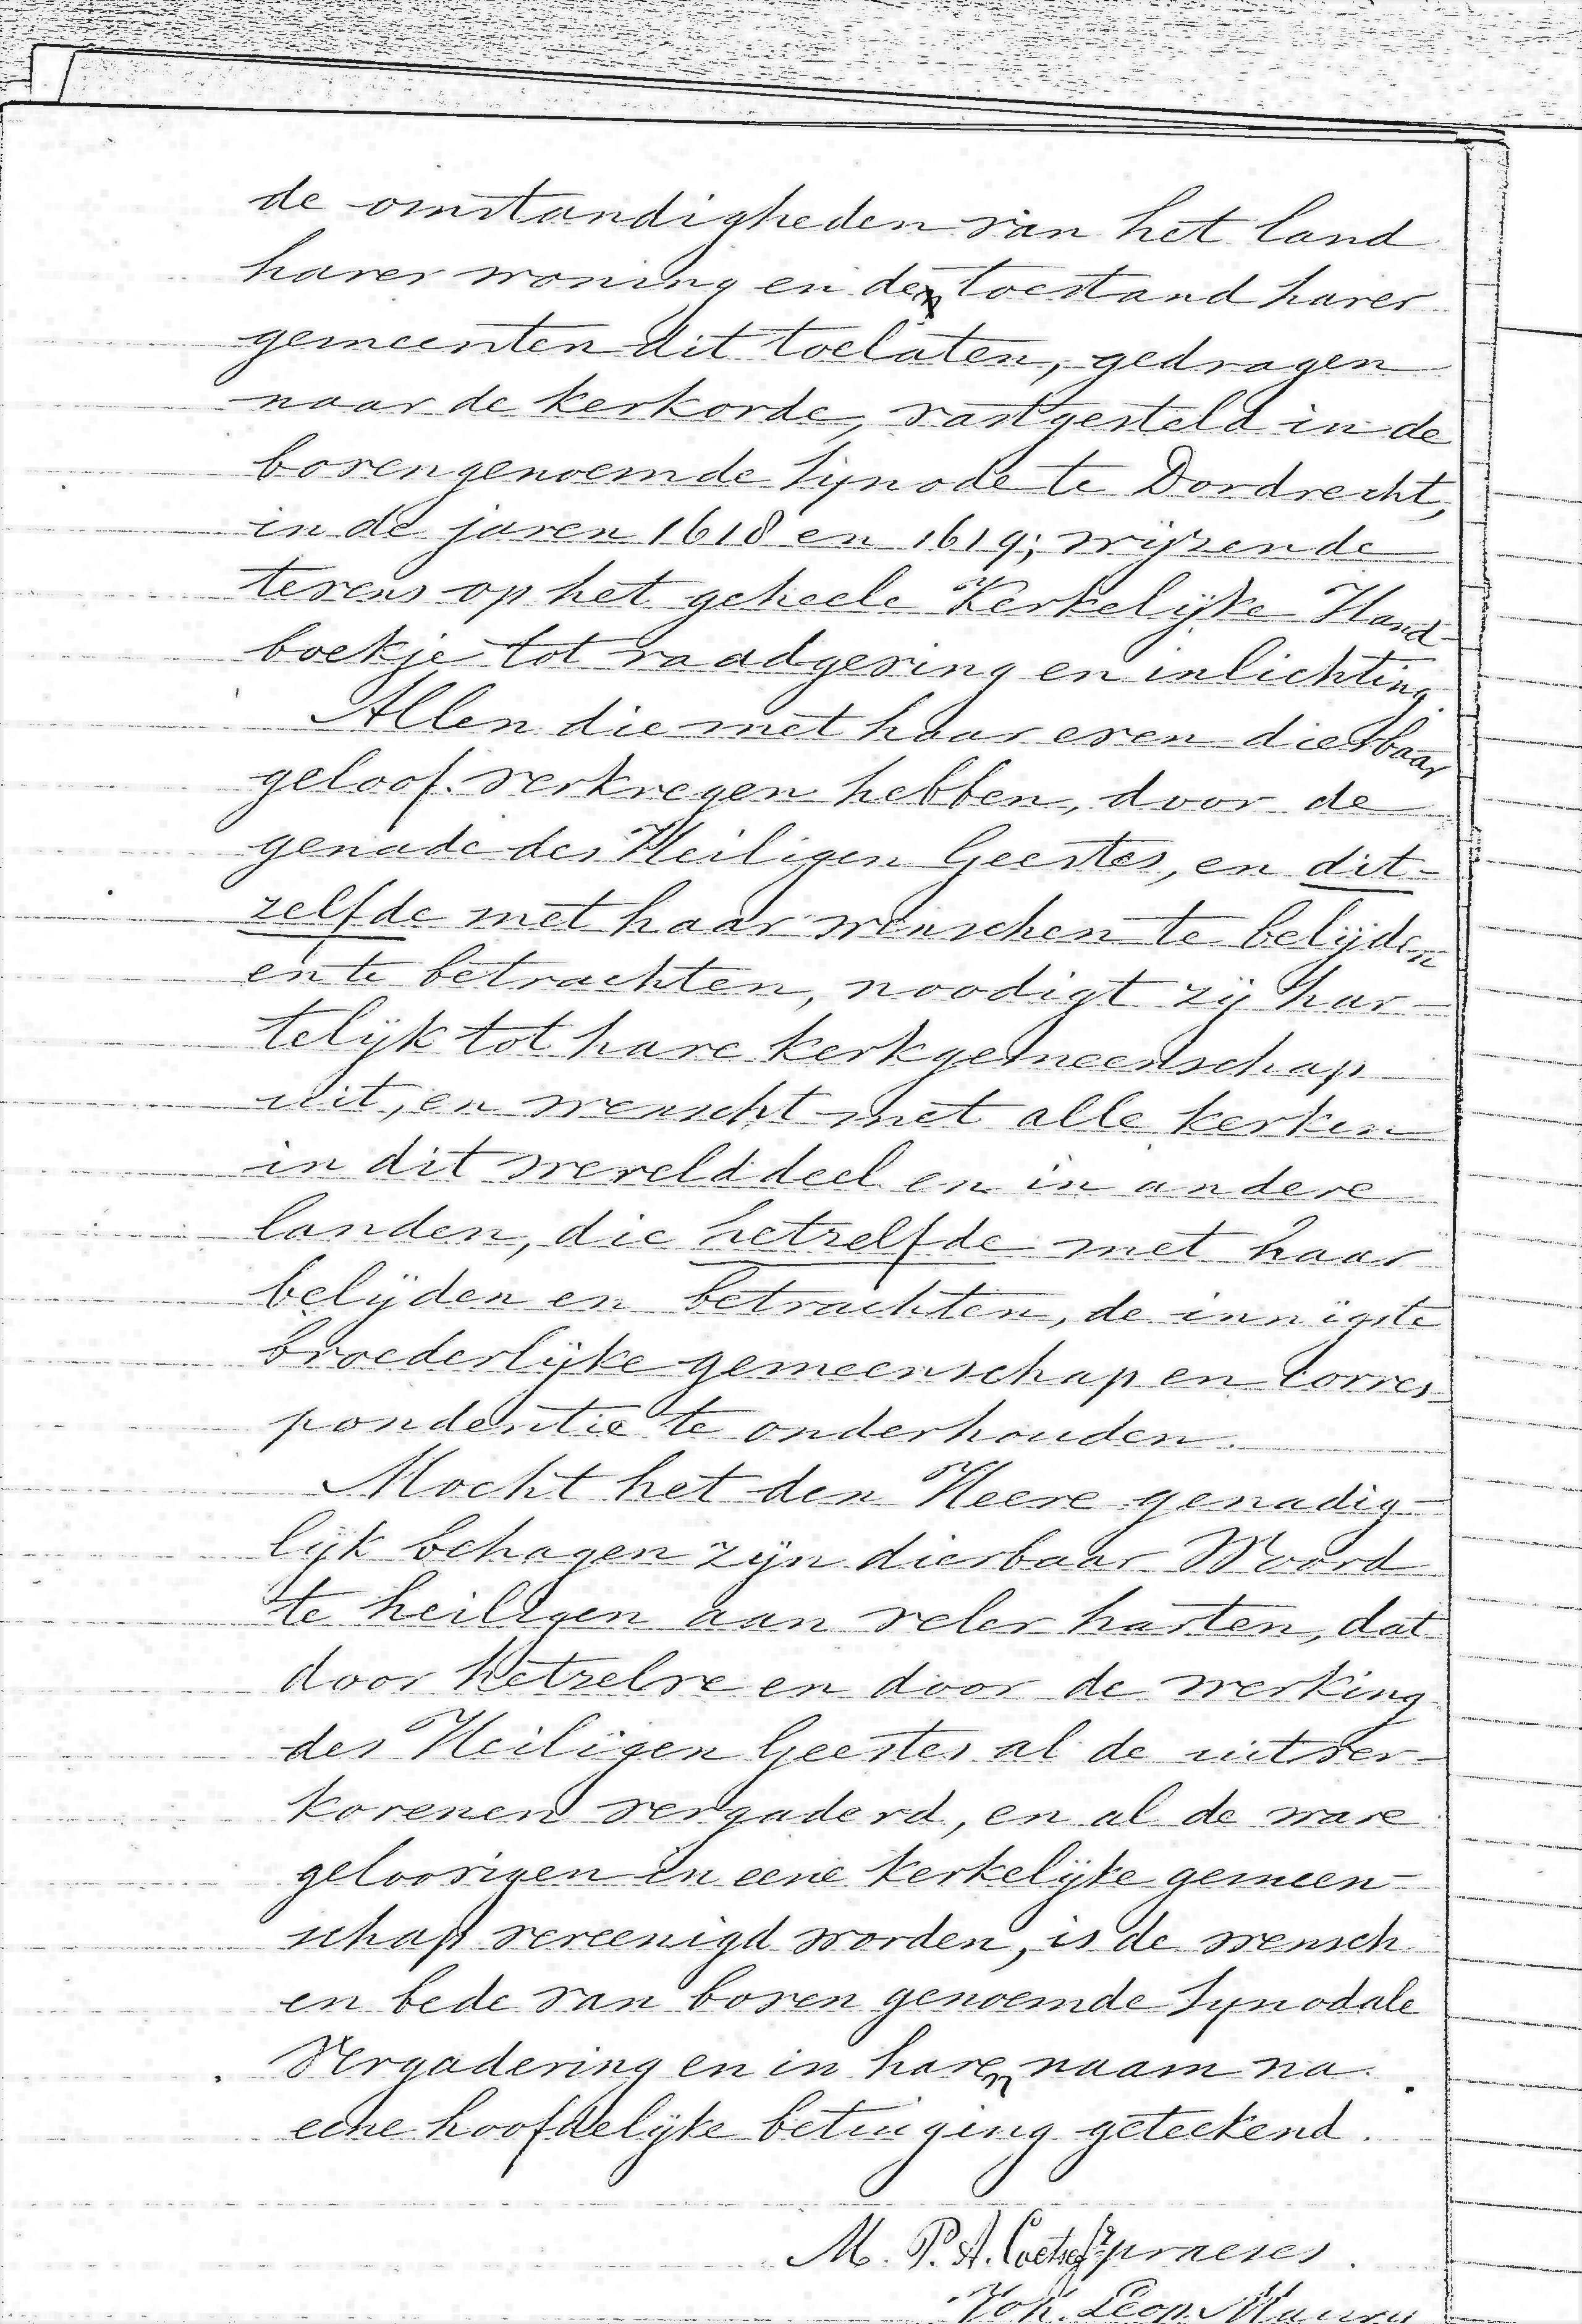 de omstandigheden van het land
harer woning en den toestand harer
gemeenten dit toelaten, gedragen
naar de kerkorde, vastgesteld in de
bovengenoemde Synode te Dordrecht,
in de jaren 1618 en 1619; wijzende
tevens op het geheele Kerkelijke Hand-
boekje tot raadgeving en inlichting.
Allen die met haar even dierbaar
geloof verkregen hebben, door de
genade des Heiligen Geestes, en dit-
zelfde met haar wenschen te belijden
en te betrachten, noodigt zij har-
telijk tot hare kerkgemeenschap
uit, en wenscht met alle kerken
in dit werelddeel en in andere
landen, die hetzelfde met haar
belijden en betrachten, de innigste
broederlijke gemeenschap en Corres-
pondentie te onderhouden.
Mocht het den Heere genadig-
lijk behagen zijn dierbaar Woord
te heiligen aan veler harten, dat
door hetzelve en door de werking
des Heiligen Geestes al de uitver-
korenen vergaderd, en al de ware
geloovigen in eene kerkelijke gemeen-
schap vereenigd worden, is de wensch
en bede van boven genoemde Synodale
Vergadering en in haren naam na
eene hoofdelijke betuiging geteekend.
M. P. A. Coetsee praeses.
Joh. Leop. Maury